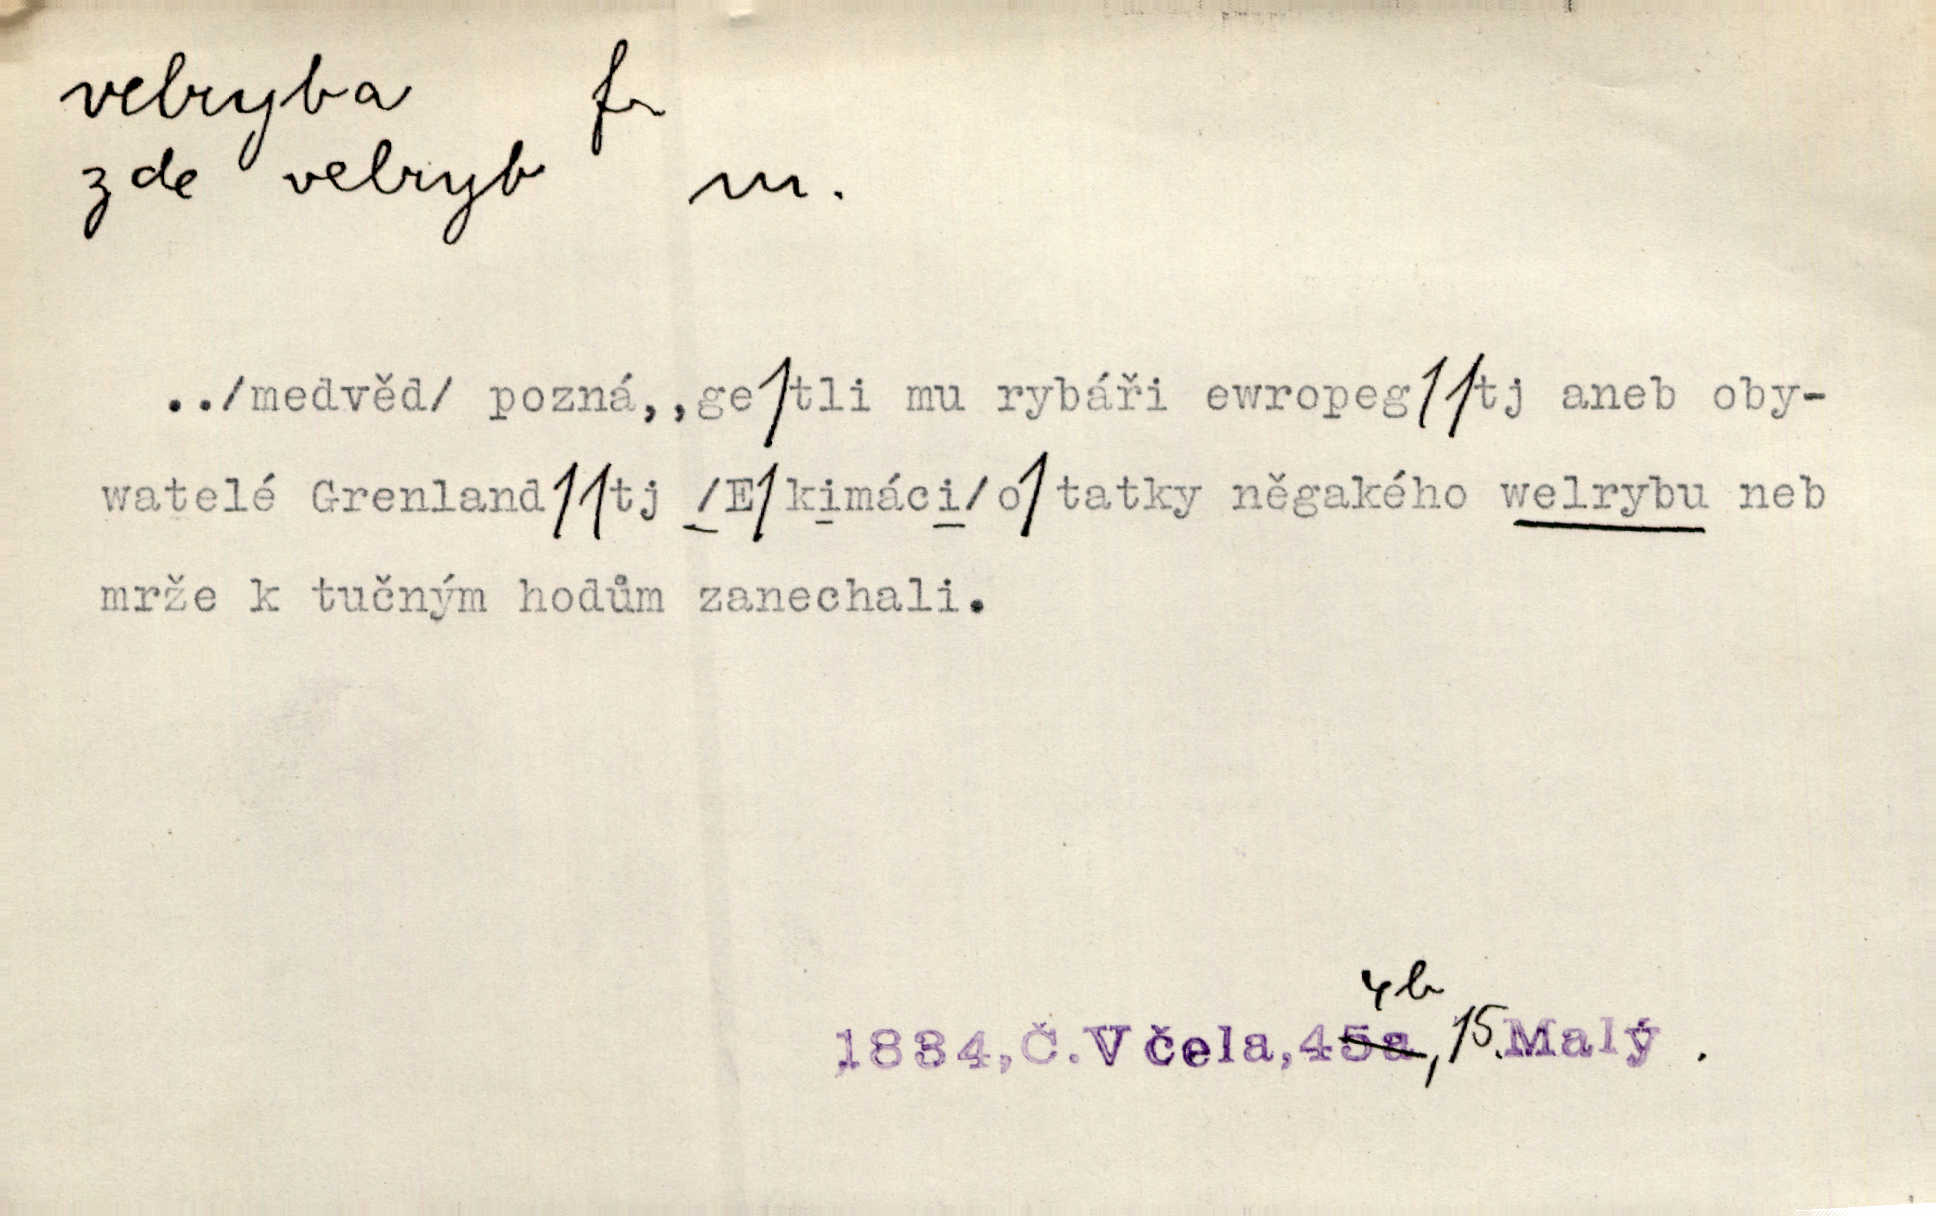 velryba f.
zde velryb m.
../medvěd/ pozná,,geſtli mu rybáři ewropegſſtj aneb oby-
watelé Grenlandſſtj /Eſkimáci/ oſtatky něgakého welrybu neb
mrže k tučným hodům zanechali.
4b
1834,Č.Včela,45a,15.Malý .